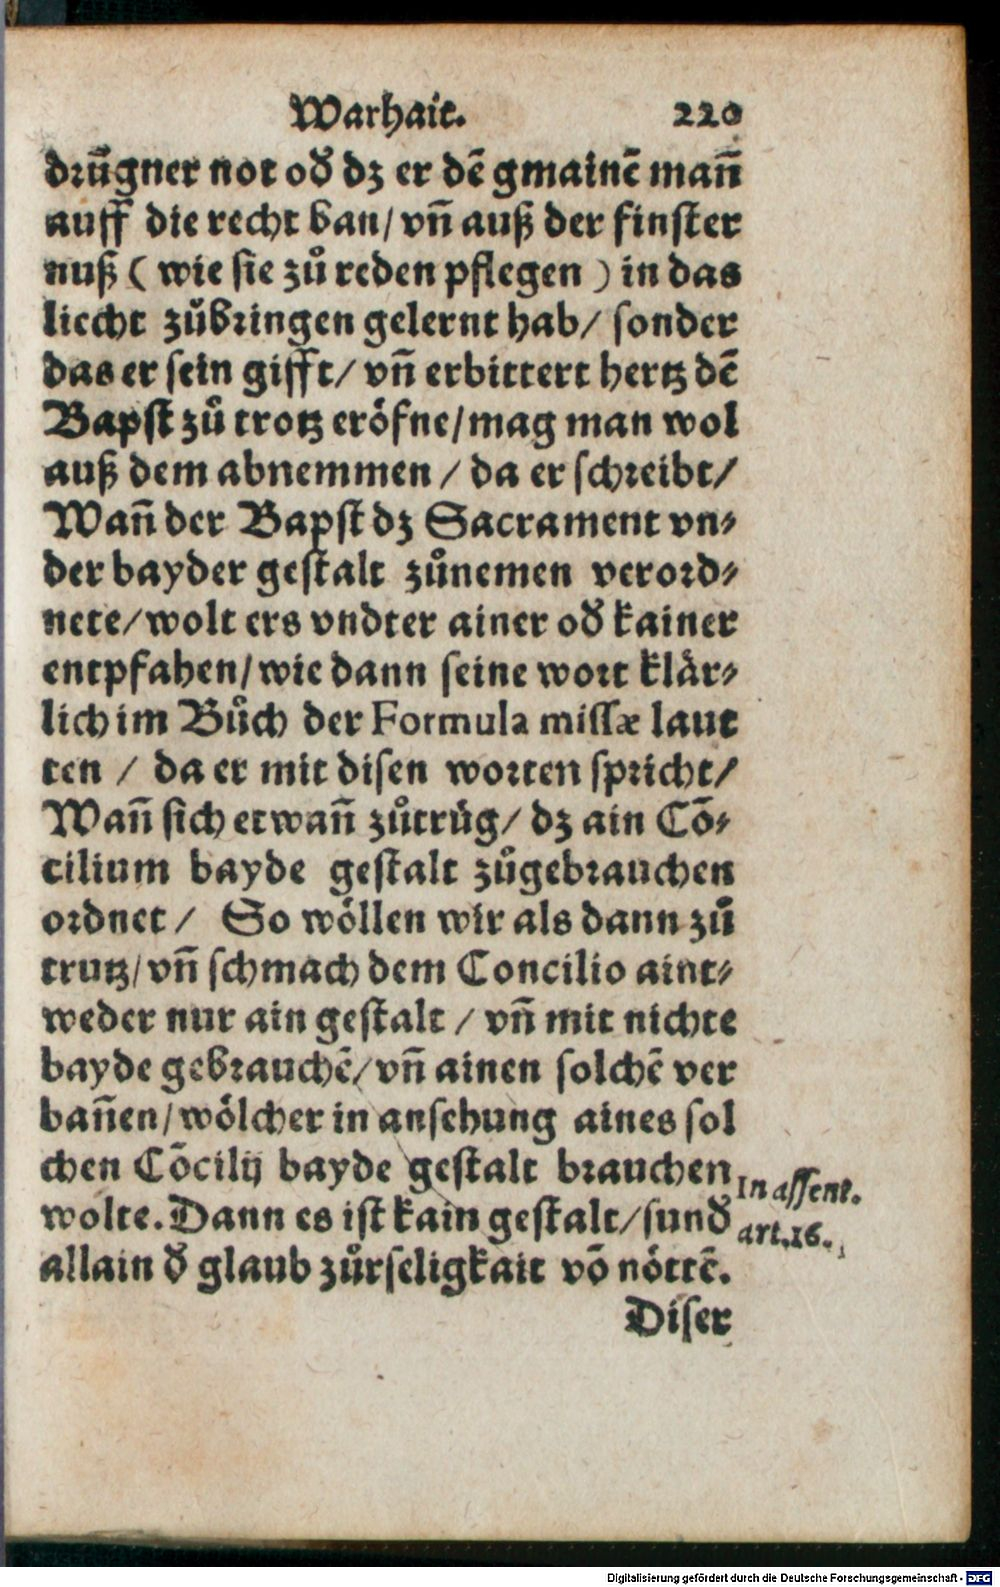 Warhait. 220
drűgner not oď dz er dē gmainē mañ
auff die recht ban/ vñ auß der finster
nuß ( wie sie zů reden pflegen ) in das
liecht zůbringen gelernt hab/ sonder
das er sein gifft/ vñ erbittert hertz dē
Bapst zů trotz eröfne/ mag man wol
auß dem abnemmen / da er schreibt/
Wañ der Bapst dz Sacrament vn⸗
der bayder gestalt zůnemen verord⸗
nete/ wolt ers vndter ainer oď kainer
entpfahen/ wie dann seine wort klär⸗
lich im Bůch der Formula missæ laut
ten / da er mit disen worten spricht/
Wañ sich etwañ zůtrüg/ dz ain Cō⸗
cilium bayde gestalt zůgebrauchen
ordnet / So wöllen wir als dann zů
trutz/ vñ schmach dem Concilio aint⸗
weder nur ain gestalt / vñ mit nichte
bayde gebrauchē/ vñ ainen solchē ver
bañen/ wölcher in ansehung aines sol
chen Cōcilij bayde gestalt brauchen
wolte. Dann es ist kain gestalt/ sund
allain ď glaub zůrseligkait vō nöttē.
In assent.
art. 16.
Diser
Digitalisierung gefördert durch die Deutsche Forschungsgemeinschaft - DFG